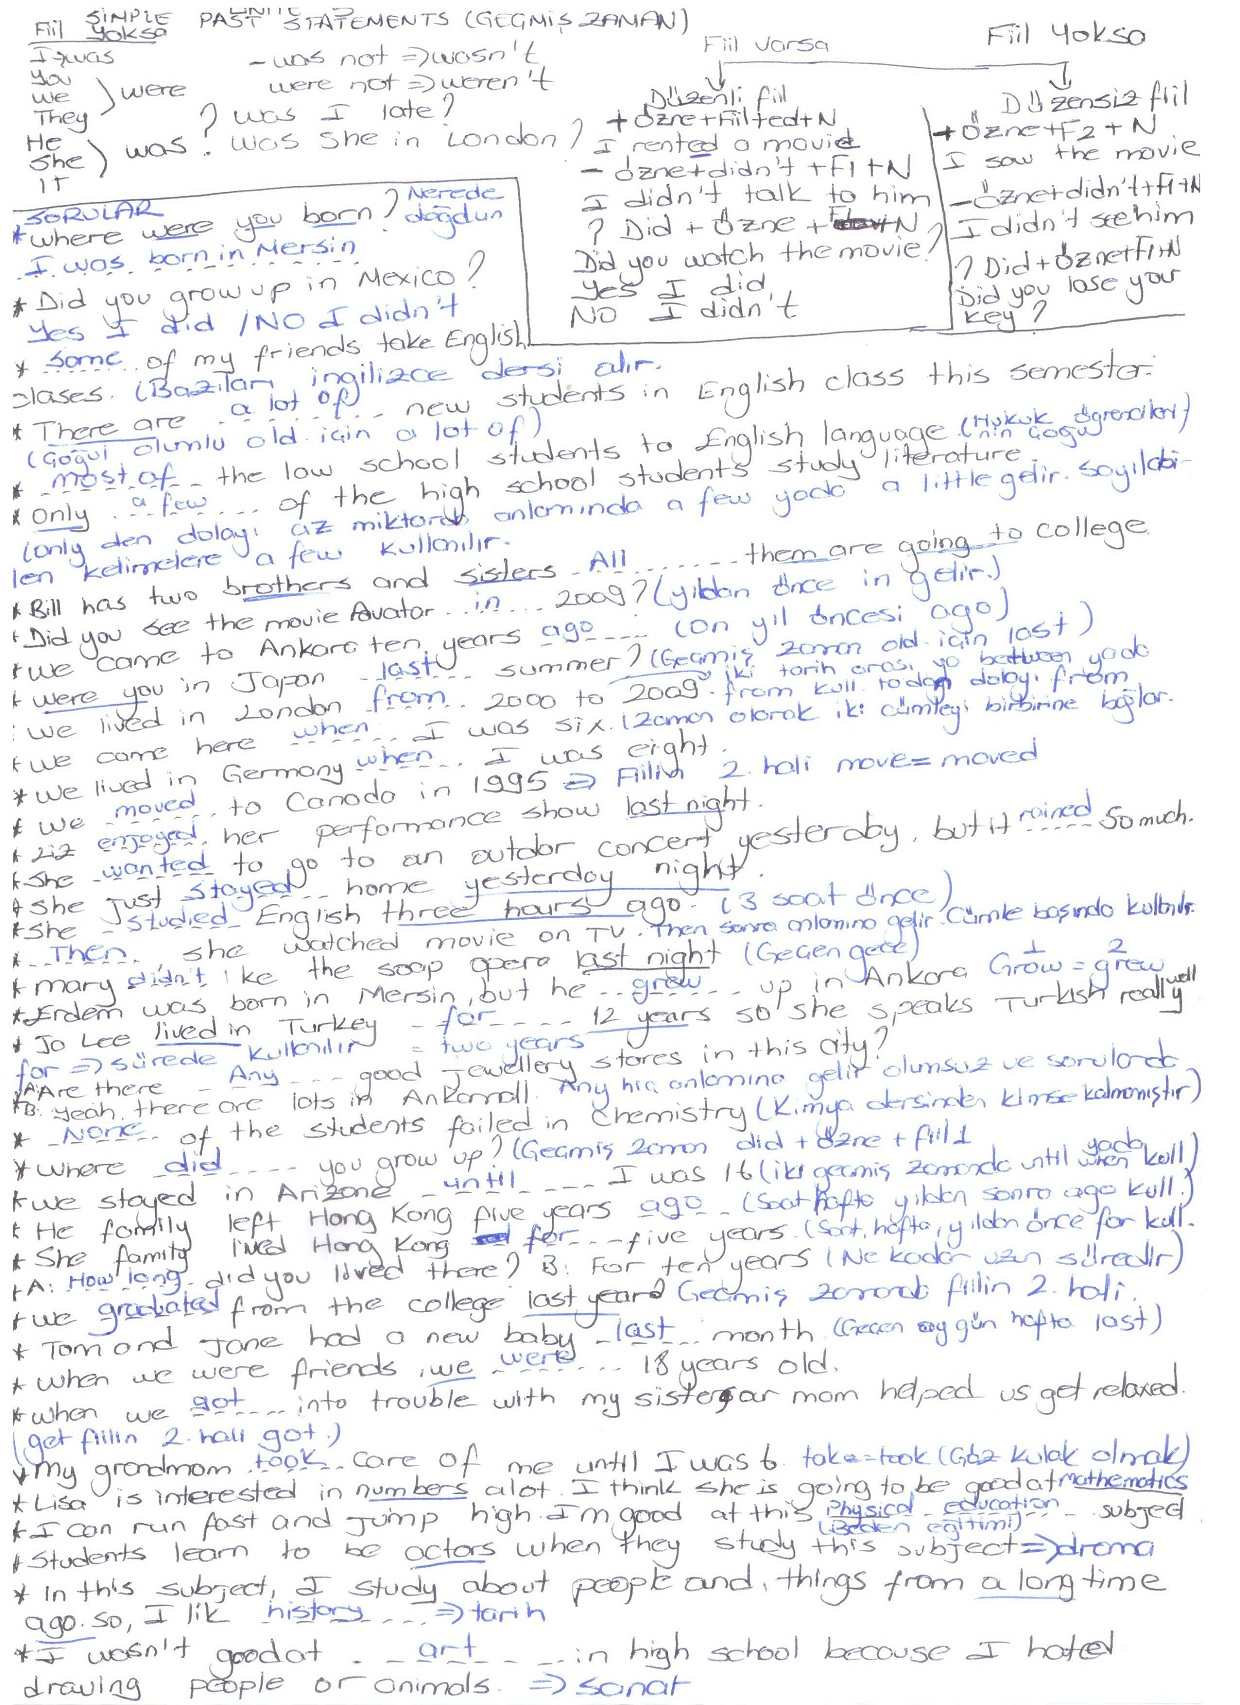 SIMPLE PAST STATEMENTS (GEÇMİŞ ZAMAN)
Fiil yoksa
I→was
You
We
They
were
He
She
IT
was
- was not ⇒ wasn't
were not ⇒ weren't
? was I late?
? was she in London?
Fiil varsa
Fiil yoksa
Düzenli fiil
+ Özne+Fiil+ed+N
I rented a movie
- özne+didn't+F1+N
I didn't talk to him
? Did + Özne + +N
Did you watch the movie?
Yes I did
NO I didn't
Düzensiz fiil
+ Özne+F2+N
I saw the movie
- özne+didn't+f1+N
I didn't see him
? Did+özne+F1+N
Did you lose your
key?
SORULAR
* where were you born? Nerede doğdun
I was born in Mersin
* Did you grow up in Mexico?
Yes I did /NO I didn't
* some of my friends take English
clases. (Bazıları ingilizce dersi alır.
* There are a lot of new students in English class this semester.
(Çoğul olumlu old. için a lot of)
* most of the low school students to English language (Hukuk öğrencileri nin çoğu)
* only a few of the high school students study literature.
(only den dolayı az miktarda anlamında a few yada a little gelir. Sayılabi-
len kelimelere a few kullanılır.
* Bill has two brothers and sisters All them are going to college
* Did you see the movie Avatar in 2009? (yıldan önce in gelir.)
* we came to Ankara ten years ago (on yıl öncesi ago)
* were you in Japan last summer? (Geçmiş zaman old. için last)
* we lived in London from 2000 to 2009. iki tarih arası ya between yada from kull. todan dolayı from
* we came here when I was six. (zaman olarak iki cümleyi birbirine bağlar.
* we lived in Germany when I was eight.
* we moved to Canada in 1995 ⇒ Fiilin 2. hali move = moved
* Liz enjoyed her performance show last night.
* She wanted to go to an outdor concert yesterday, but it rained so much.
* She just stayed home yesterday night.
* She studied English three hours ago. (3 saat önce)
* Then, she watched movie on TV. Then sonra anlamına gelir. Cümle başında kullanılır.
* mary didn't like the soap opera last night (Geçen gece)
* Erdem was born in Mersin, but he grew up in Ankara Grow = grew
1 2
* Jo Lee lived in Turkey for 12 years so she speaks Turkish really well
for ⇒ sürede kullanılır = two years
* A: Are there Any good jewellery stores in this city?
* B: yeah, there are lots in Ankamall. Any hiç anlamına gelir olumsuz ve sorularda
* None of the students failed in chemistry (Kimya dersinden kimse kalmamıştır)
* where did you grow up? (Geçmiş zaman did + özne + fiil1
* we stayed in Arizone until I was 16 (iki geçmiş zamanda until yada when kull)
* He family left Hong Kong five years ago (Saat hafta yıldan sonra ago kull.)
* She family lived Hong Kong for five years. (Saat, hafta, yıldan önce for kull.
* A: How long did you lived there? B: For ten years (Ne kadar uzun süredir)
* we graduated from the college last year? Geçmiş zamanda fiilin 2. hali.
* Tom and Jane had a new baby last month (Geçen ay gün hafta last)
* when we were friends, we were 18 years old.
* when we got into trouble with my sister, our mom helped us get relaxed.
(get fiilin 2. hali got.)
* My grandmom took care of me until I was 6. take=took (Göz kulak olmak)
* Lisa is interested in numbers alot. I think she is going to be good at mathematics
* I can run fast and jump high. I'm good at this Physical education subject
(Beden eğitimi)
* Students learn to be actors when they study this subject ⇒ drama
* In this subject, I study about people and, things from a long time
ago. so, I lik history ⇒ tarih
* I wasn't good at art in high school because I hated
drawing people or animals. ⇒ sanat